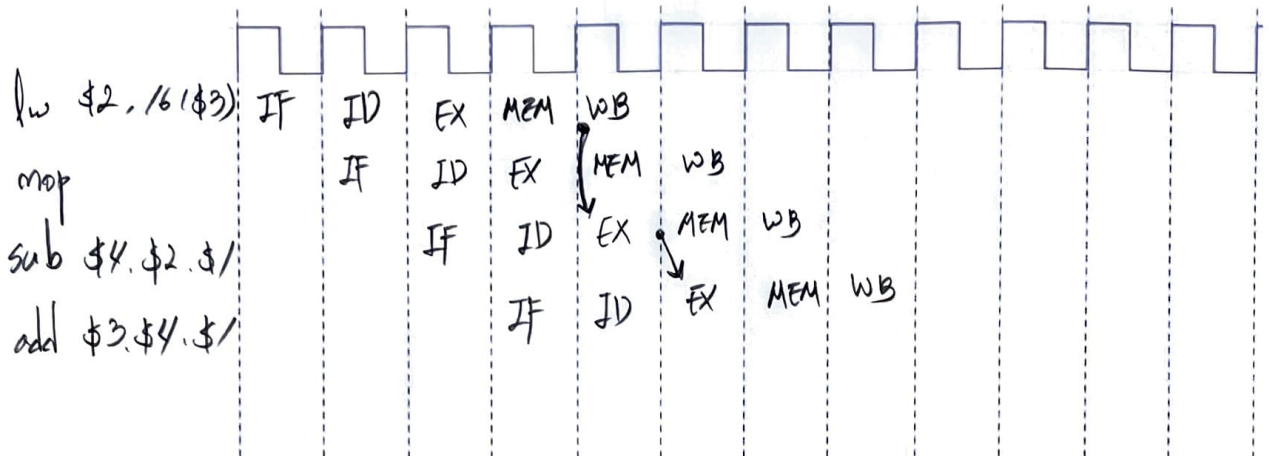 lw $2, 16($3) IF ID EX MEM WB
nop IF ID EX MEM WB
sub $4.$2.$1 IF ID EX MEM WB
add $3.$4.$1 IF ID EX MEM WB